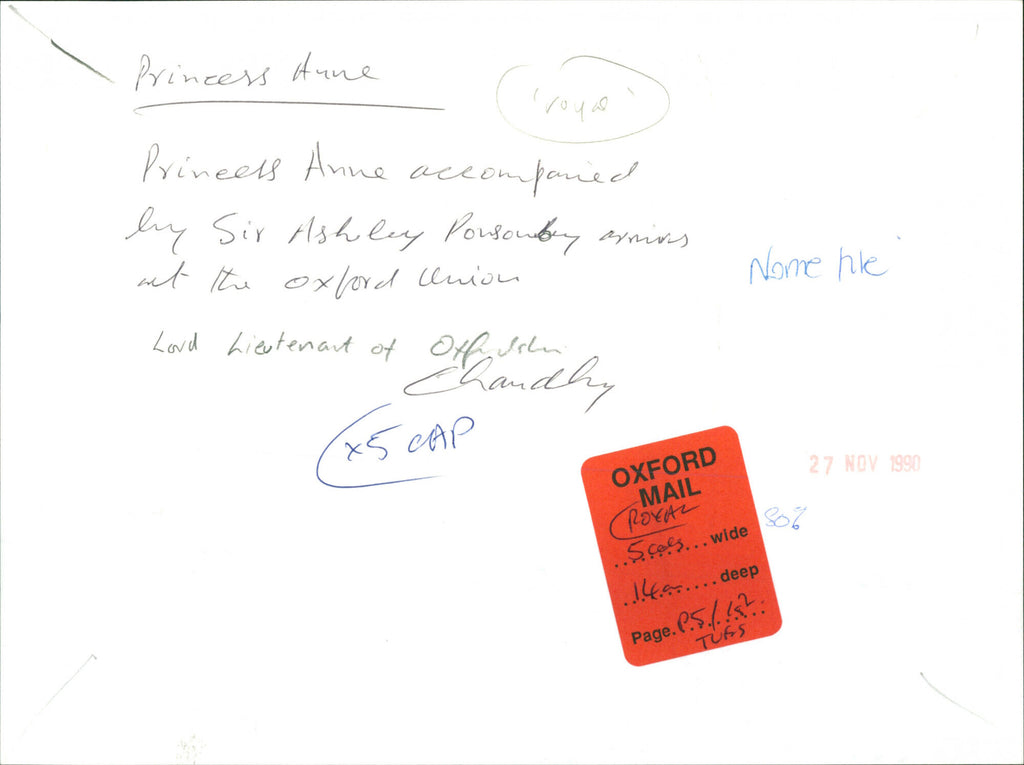 Princess Anne
'royal'
Princess Anne accompanied
by Sir Ashley Ponsonby arrives
at the Oxford Union
Name file
Lord Lieutenant of Oxfordshire
x5 CAP
27 NOV 1990
OXFORD
MAIL
ROYAL
5 cols wide
80%
14cm deep
Page. P5/1st
TUES